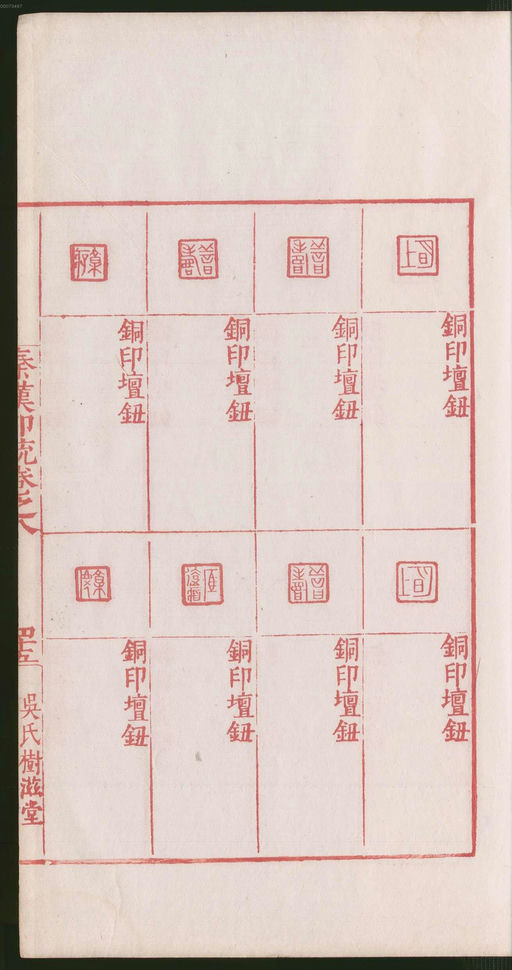 銅印壇鈕
銅印壇鈕
銅印壇鈕
銅印壇鈕
銅印壇鈕
銅印壇鈕
銅印壇鈕
銅印壇鈕
秦漢印統卷之八
四十五
吳氏樹滋堂
00073497